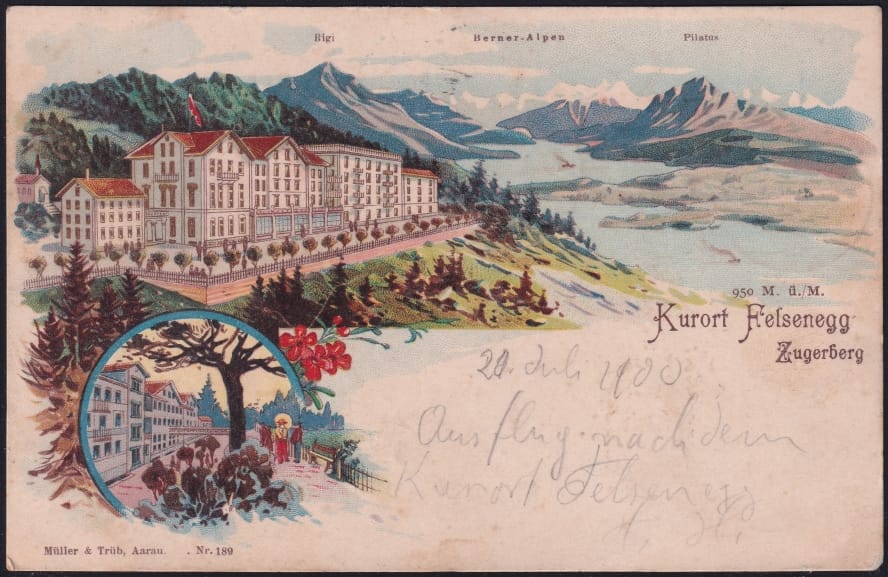 Rigi
Berner-Alpen
Pilatus
950 M. ü./M.
Kurort Felsenegg
Zugerberg
Juli 1900
Ausflug nach dem
Kurort Felsenegg
Müller & Trüb, Aarau. . Nr. 189